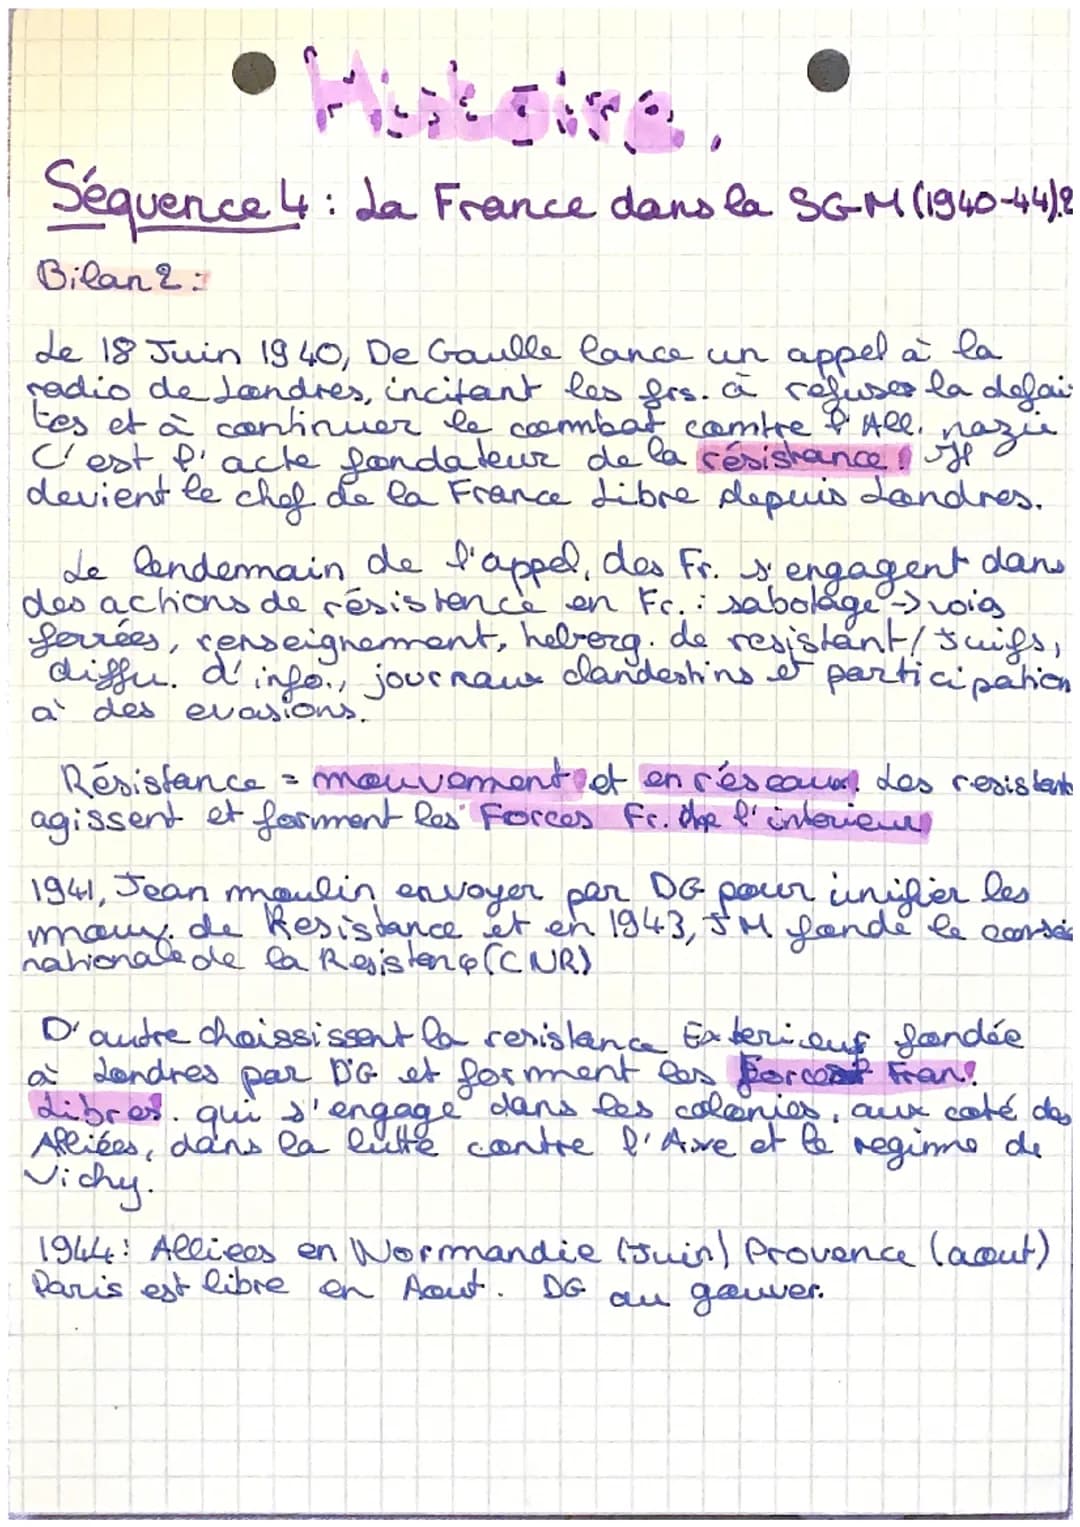 Histoire.
Séquence 4 : La France dans la SGM (1940-44).2
Bilan 2 :
Le 18 Juin 1940, De Gaulle lance un appel à la
radio de Londres, incitant les frs. à refuser la defai
tes et à continuer le combat contre l'All. nazie
C'est l'acte fondateur de la résistance. Il
devient le chef de la France Libre depuis Londres.
Le lendemain de l'appel, des Fr. s'engagent dans
des actions de résistence en Fr. : sabotage -> voies
ferrées, renseignement, heberg. de resistant/Juifs,
diffu. d'info., journaux clandestins et participation
à des evasions.
Résistance = mouvement et en réseaux. Les resistants
agissent et forment les Forces Fr. de l'interieur
1941, Jean moulin envoyer par DG pour unifier les
mouv. de Resistance et en 1943, JM fonde le consei
nationale de la Resistence (CNR)
D'autre choississent la resistance Exterieur fondée
à Londres par DG et forment les Forces Fran.
Libres. qui s'engage dans les colonies, aux coté des
Alliées, dans la lutte contre l'Axe et le regime de
Vichy.
1944 : Alliees en Normandie (Juin) Provence (aout)
Paris est libre en Aout. DG au gouver.